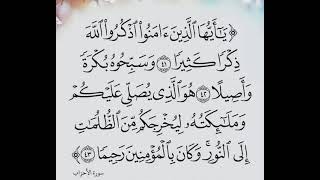 ﴿ يَٰٓأَيُّهَا ٱلَّذِينَ ءَامَنُوا۟ ٱذْكُرُوا۟ ٱللَّهَ
ذِكْرًا كَثِيرًا ٤١ وَسَبِّحُوهُ بُكْرَةً
وَأَصِيلًا ٤٢ هُوَ ٱلَّذِى يُصَلِّى عَلَيْكُمْ
وَمَلَٰٓئِكَتُهُۥ لِيُخْرِجَكُم مِّنَ ٱلظُّلُمَٰتِ
إِلَى ٱلنُّورِ ۚ وَكَانَ بِٱلْمُؤْمِنِينَ رَحِيمًا ٤٣ ﴾
سورة الأحزاب